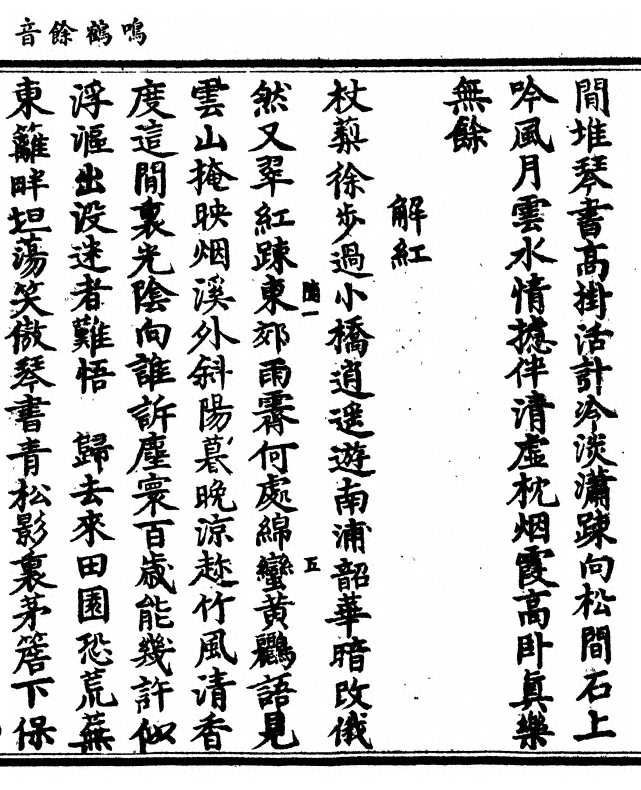 鳴鶴餘音
閒堆琴書高掛活計冷淡瀟踈向松間石上
吟風月雲水情摅伴清虛枕烟霞高卧眞樂
無餘
解紅
杖藜徐步過小橋逍遥遊南浦韶華暗改俄
然又翠紅踈東郊雨霽何處綿蠻黄鸝語見
随一
五
雲山掩映烟溪外斜陽暮晚凉趂竹風清香
度這閒裏光陰向誰訴塵寰百歲能幾許似
浮漚出没迷者難悟 歸去來田園恐荒蕪
東籬畔坦蕩笑傲琴書青松影裏茅簷下保